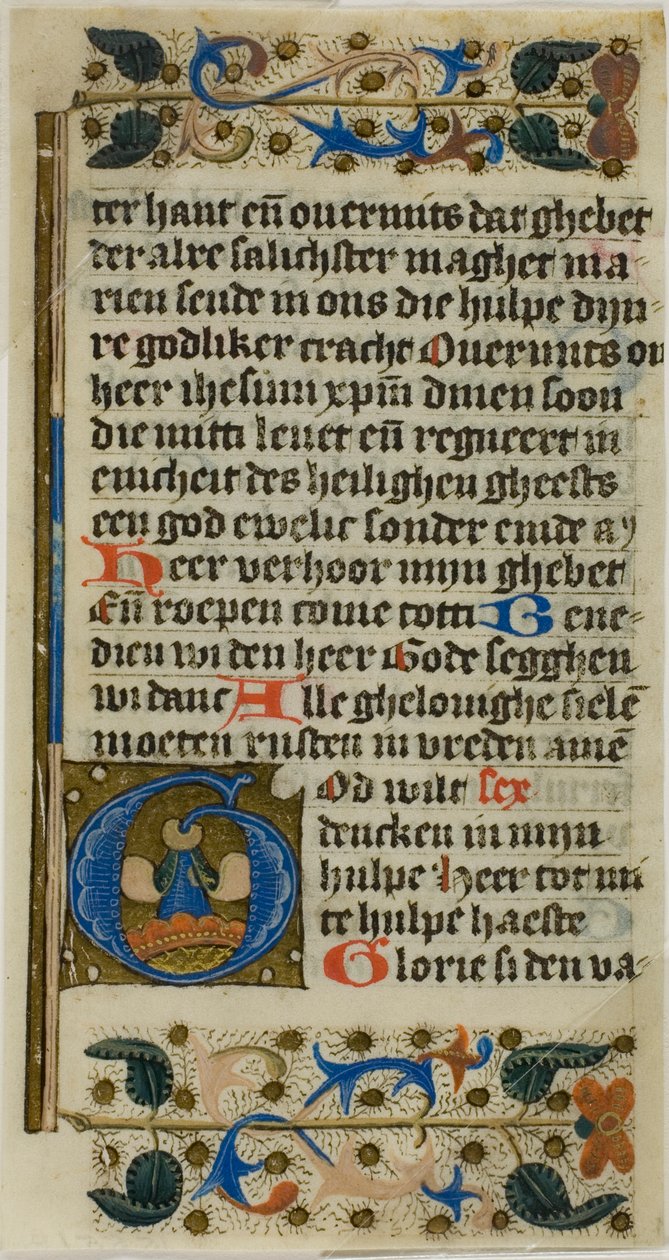 ter hant en̄ ouermits dat ghebet
der alre salichster maghet ma
rien sende in ons die hulpe dijn-
re godliker cracht Ouermits on
heer ihesum xpm̄ dinen soon
die mitti leuet en̄ regneert in
enicheit des heilighen gheests
een god ewelic sonder einde
Heer verhoor mijn ghebet
En̄ roepen come totti Bene-
dien wi den heer Gode segghen
wi danc Alle ghelouighe sielē
moeten rusten in vreden amē
God wilt sex
dencken in mijn
hulpe Heer tot mi
te hulpe haeste
Glorie si den va-